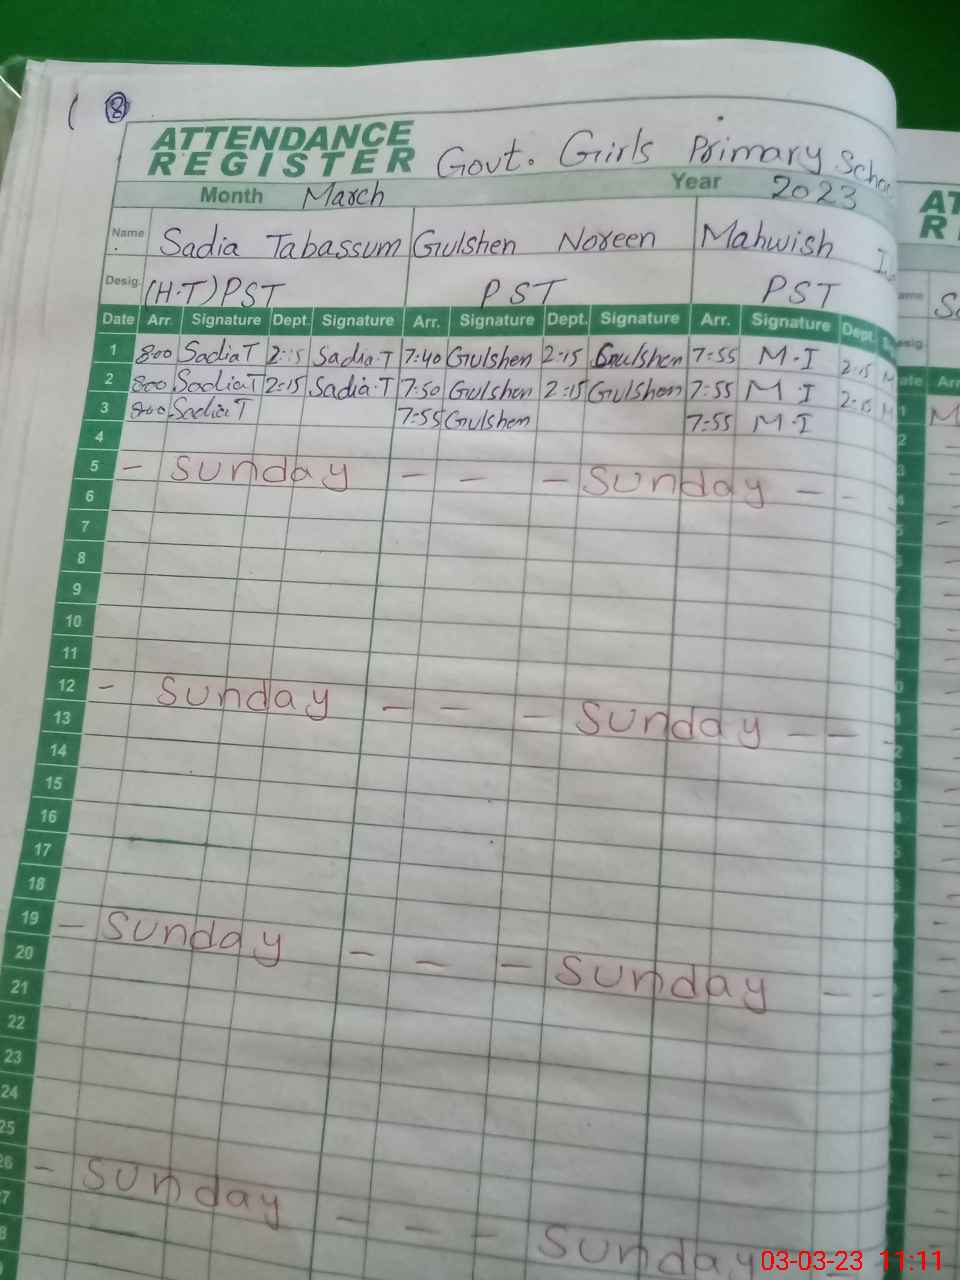 ( 8
ATTENDANCE
REGISTER Govt. Girls Primary School
Month March Year 2023
Name Sadia Tabassum Gulshen Noreen Mahwish
Desig. (H.T) PST PST PST
Date Arr. Signature Dept. Signature Arr. Signature Dept. Signature Arr. Signature Dept.
1 8:00 Sadia T 2:15 Sadia.T 7:40 Gulshen 2:15 Gulshen 7:55 M.I 2:15 M
2 8:00 Sadia T 2:15 Sadia.T 7:50 Gulshen 2:15 Gulshen 7:55 M I 2:15 M
3 8:00 Sadia T 7:55 Gulshen 7:55 M.I
4
5 - Sunday - - - Sunday - -
6
7
8
9
10
11
12 - Sunday - - - Sunday - - -
13
14
15
16
17
18
19 - Sunday - - - Sunday - -
20
21
22
23
24
25
26 - Sunday - - - Sunday -
03-03-23 11:11